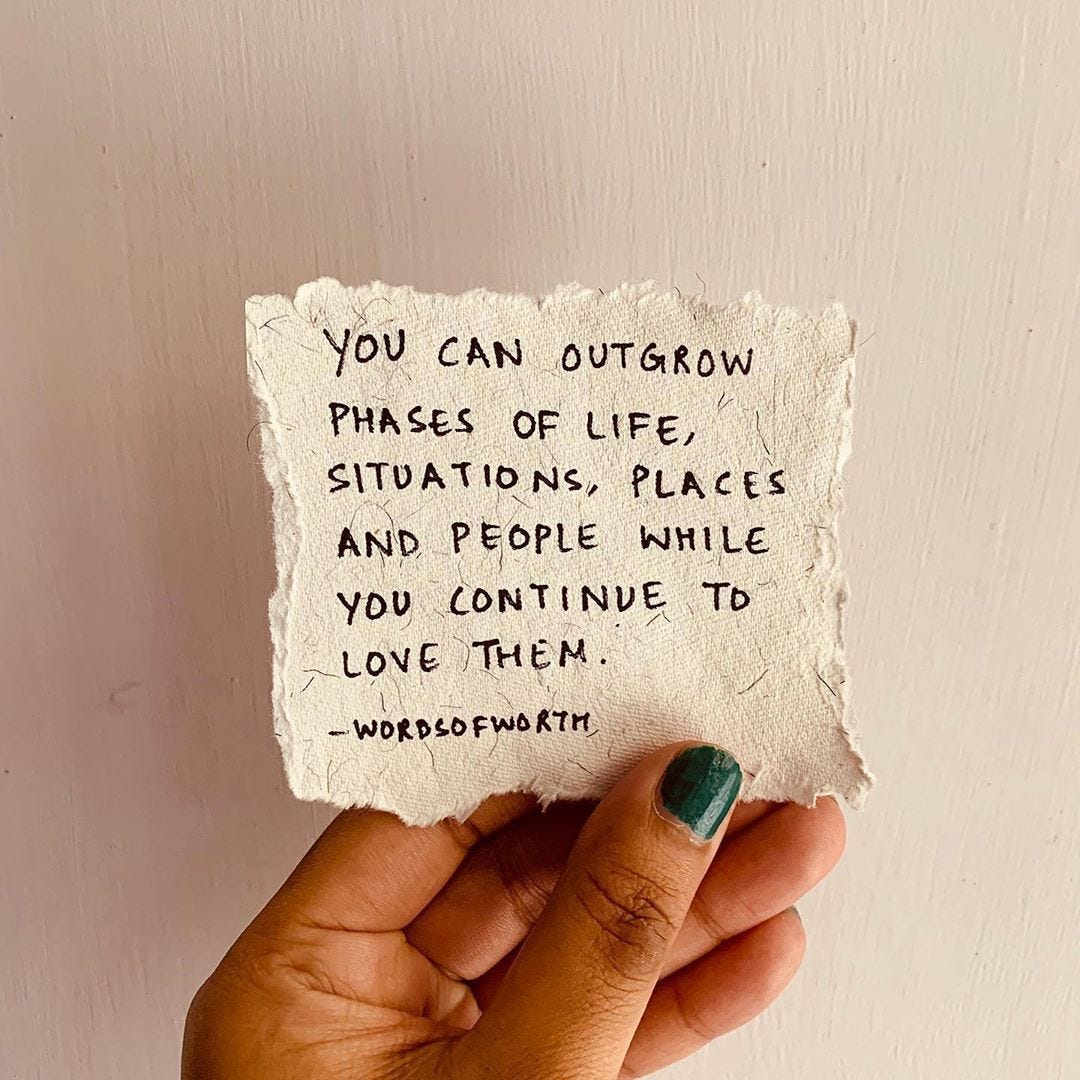 YOU CAN OUTGROW
PHASES OF LIFE,
SITUATIONS, PLACES
AND PEOPLE WHILE
YOU CONTINUE TO
LOVE THEM.
-WORDSOFWORTH